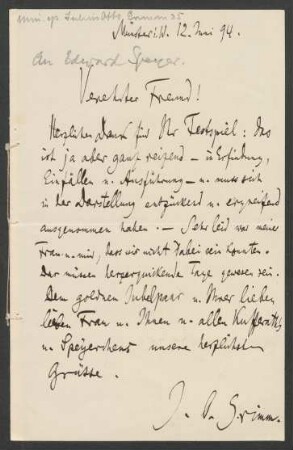 Münster i. W. 12. Juni 94.
An Edward Speyer.
Verehrter Freund!
Herzlichen Dank für Ihr Festspiel: das
ist ja aber ganz reizend – in Erfindung,
Einfällen u. Ausführung – u. muss sich
in der Darstellung entzückend u. ergreifend
ausgenommen haben. – Sehr leid war meiner
Frau u. mir, dass wir nicht dabei sein konnten.
Das müssen herzerquickende Tage gewesen sein.
Dem goldnen Jubelpaar u. Ihrer lieben
lieben Frau u. Ihnen u. allen Kufferaths
u. Speyerchens unsere herzlichsten
Grüsse.
J. O. Grimm.